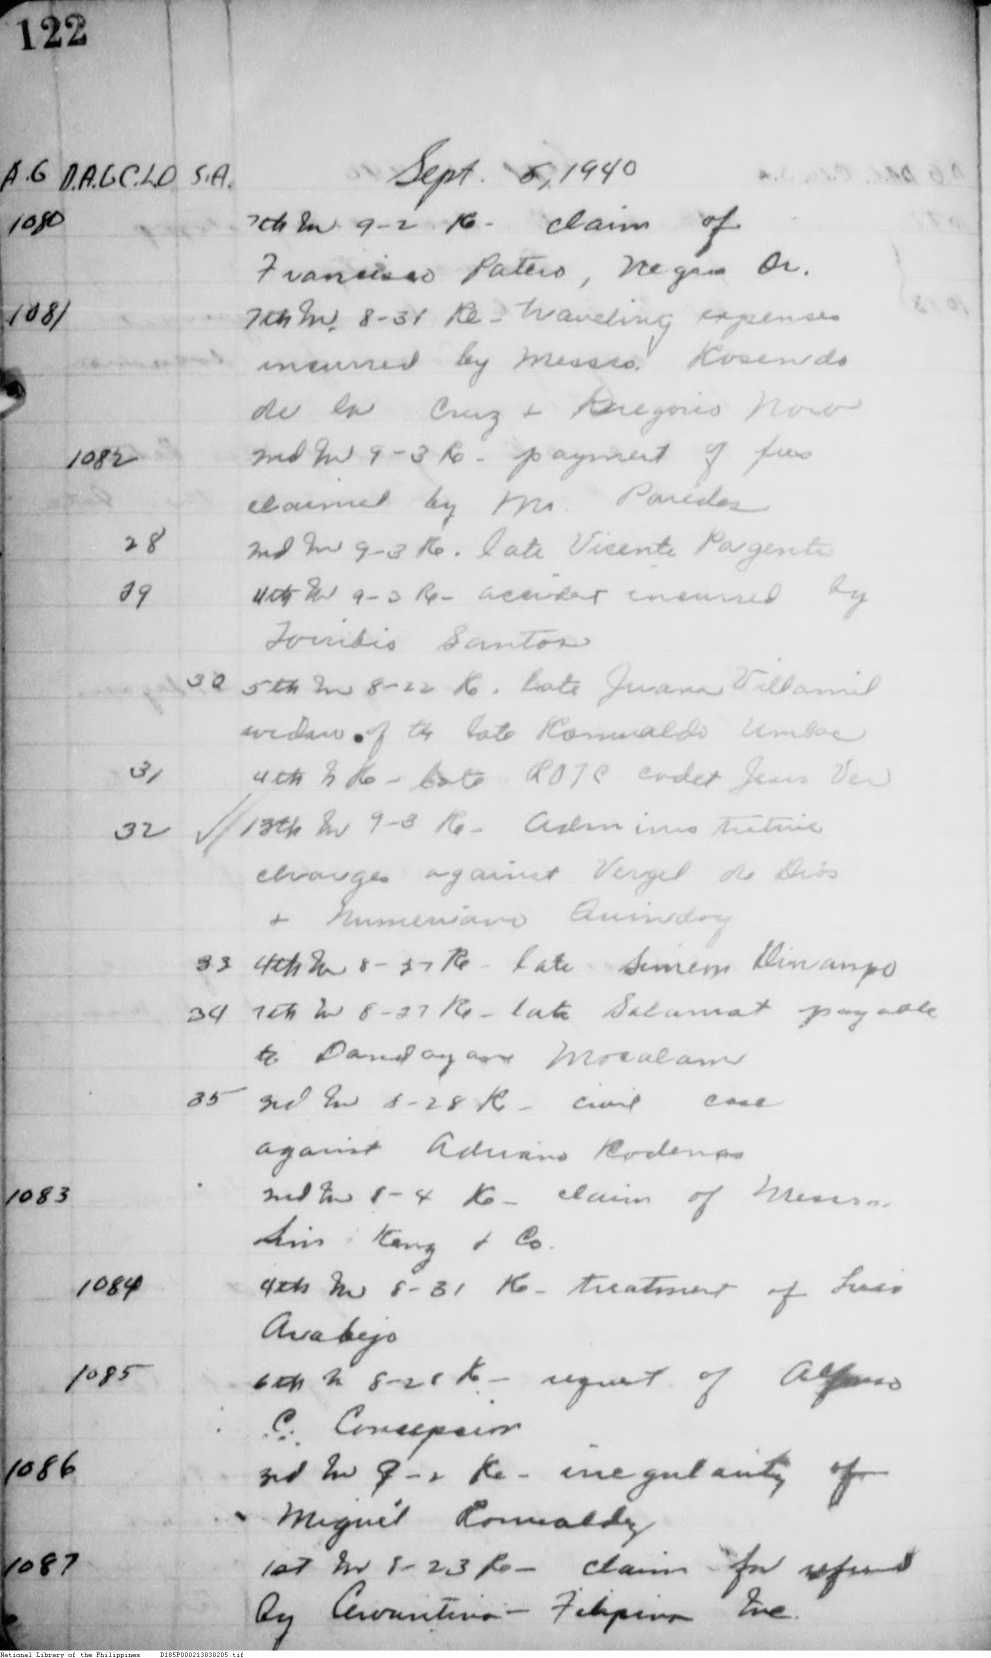 122
A.G D.A.G C.L.O S.A. Sept. 5, 1940
1080 7th In 9-2 Re- claim of
Francisco Patero, Negros Or.
1081 7th In. 8-31 Re- traveling expenses
incurred by Messrs. Rosendo
de la Cruz + Gregorio Novo
1082 2nd In 9-3 Re- payment of fees
claimed by Mr. Paredes
28 2nd In 9-3 Re. late Vicente Pargente
29 4th In 9-3 Re- accident incurred by
Toribio Santos
30 5th In 8-22 Re. late Juana Villamil
widow of the late Romualdo
31 4th In Re- late ROTC cadet Jesus Ver
32 13th In 9-3 Re- Administrative
charges against Vergel de Dios
+ Numeriano Quindoy
33 4th In 8-27 Re- late Simeon Dinampo
34 7th In 8-27 Re- late Salamat payable
to Dandayan Mocalam
35 3rd In 8-28 Re- civil case
against Adriano Rodenas
1083 2nd In 8-4 Re- claim of Messrs.
Lim Kang + Co.
1084 4th In 8-31 Re- treatment of Luis
Arabejo
1085 6th In 8-28 Re- request of Alfonso
C. Concepcion
1086 3rd In 9-2 Re- irregularity of
Miguel Romualdez
1087 1st In 8-23 Re- claim for refund
by Filipina Inc.
National Library of the Philippines D185P000213830205.tif